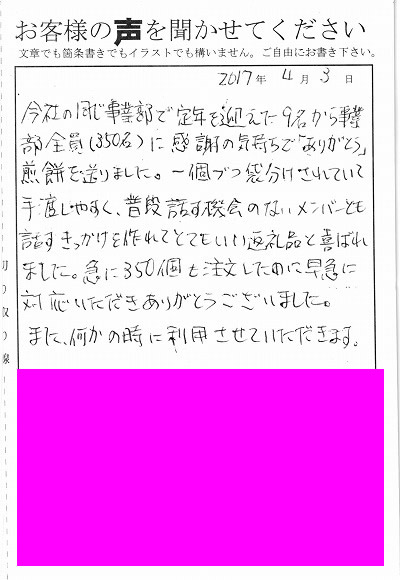 お客様の声を聞かせてください
文章でも箇条書きでもイラストでも構いません。ご自由にお書き下さい。
2017年 4月 3日
今社の同じ事業部で定年を迎えた9名から事業
部全員(350名)に感謝の気持ちで「ありがとう」
煎餅を送りました。一個づつ袋分けされていて
手渡しやすく、普段話す機会のないメンバーとも
話すきっかけを作れてとてもいい返礼品と喜ばれ
ました。急に350個も注文したのに早急に
対応いただきありがとうございました。
また、何かの時に利用させていただきます。
切り取り線